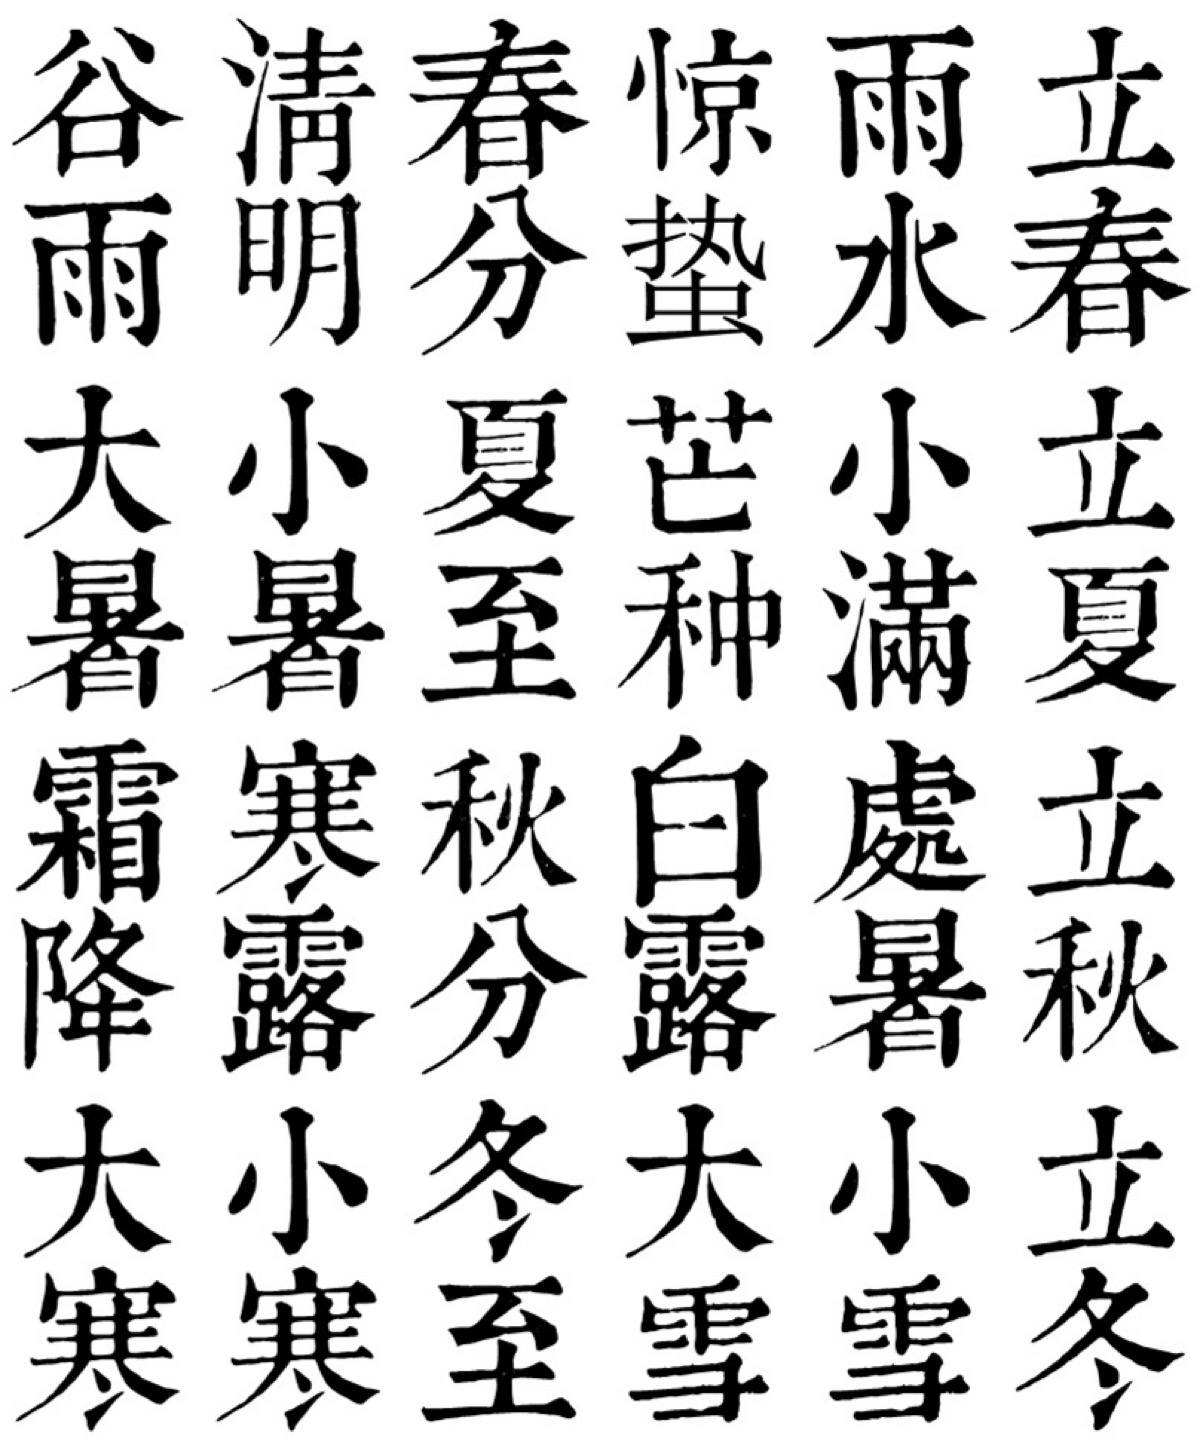 立春
雨水
惊蛰
春分
淸明
谷雨
立夏
小滿
芒种
夏至
小暑
大暑
立秋
處暑
白露
秋分
寒露
霜降
立冬
小雪
大雪
冬至
小寒
大寒